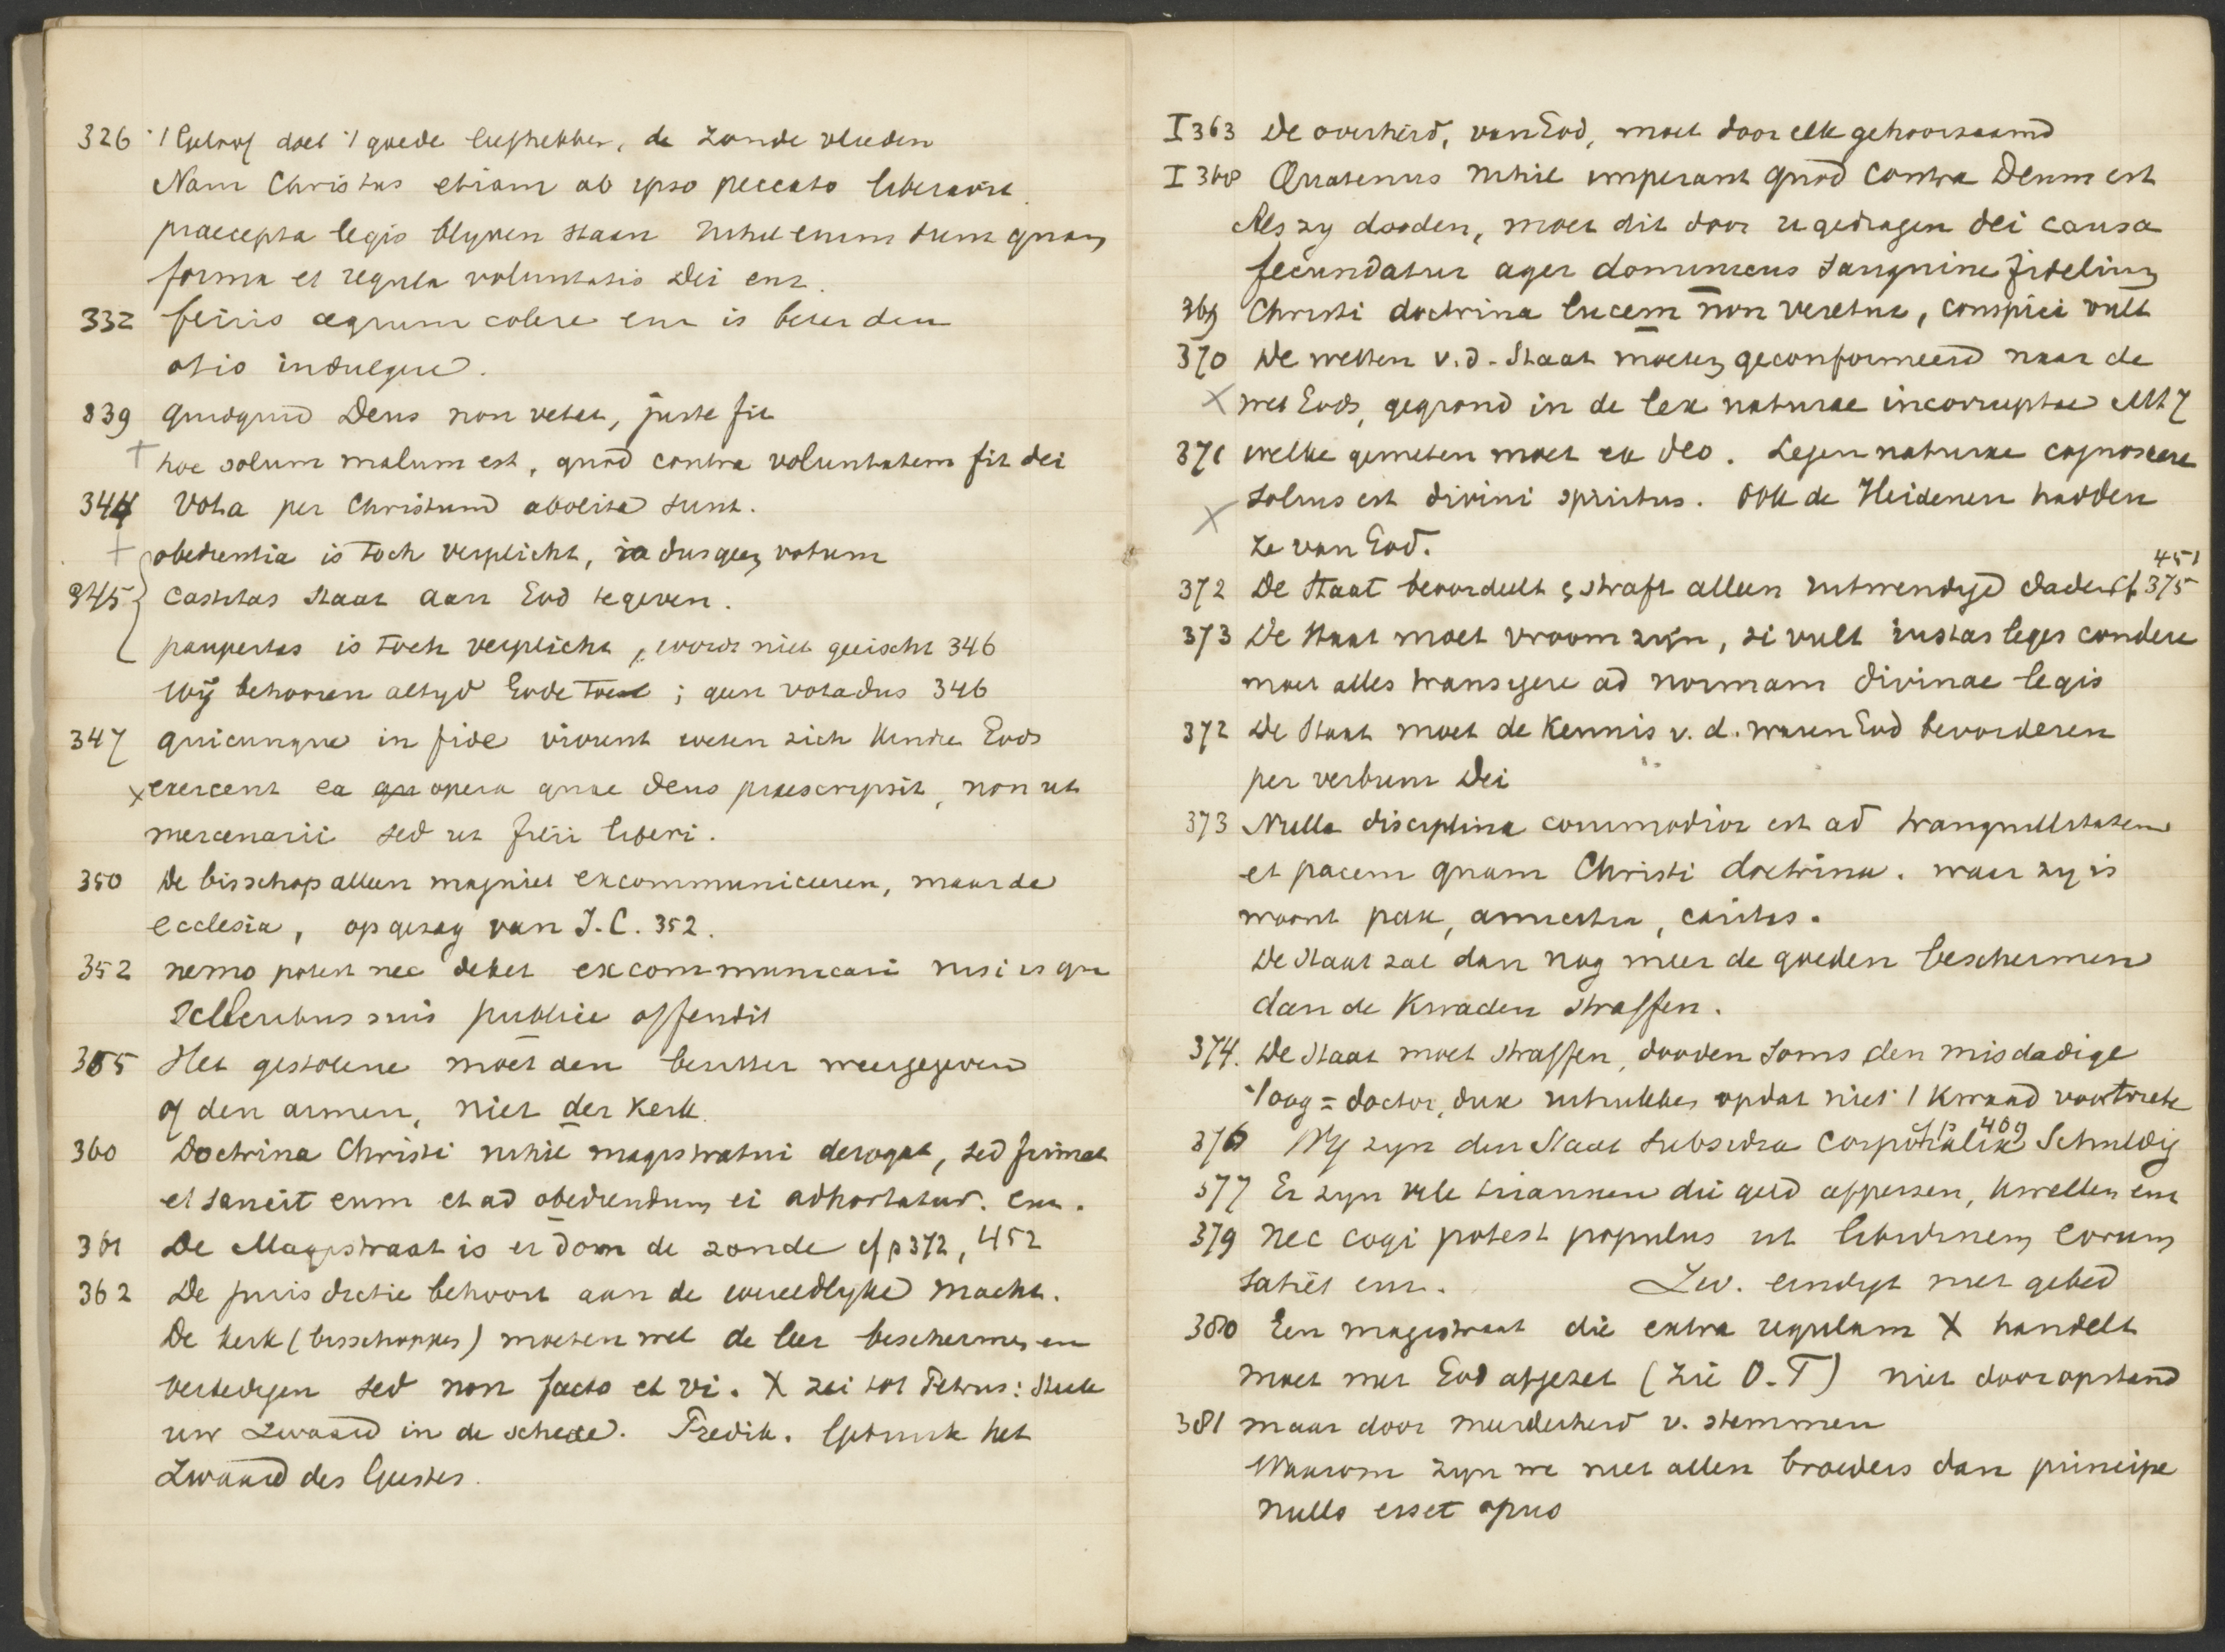 326 't Geloof doet 't goede liefhebben, de zonde vlieden
Nam Christus etiam ab ipso peccato liberavit.
praecepta legis blyven staan nihil enim sunt quam
forma et regula voluntatis Dei enz.
332 feriis agrum colere enz is beter dan
otio indulgere.
339 quidquid Deus non vetat, juste fit
+ hoc solum malum est, quod contra voluntatem fit dei
344 Vota per Christum abolita sunt.
+ obedientia is toch verplicht, is dus geen votum
345 castitas staat aan God te geven.
paupertas is toch verplicht, wordt niet geeischt 346
Wij behooren altyd Gode toe; geen vota dus 346
347 quicunque in fide vivunt weten zich kindren Gods
x exercent ea opera quae Deus praescripsit, non ut
mercenarii sed ut filii liberi.
350 De bisschop alleen mag niet excommuniceeren, maar de
ecclesia, op gezag van J.C. 352.
352 nemo potest nec debet excommunicari nisi is qui
sceleribus suis publice offendit
355 Het gestolene moet den bezitter weergegeven
of den armen, niet der Kerk.
360 Doctrina Christi nihil magistratui derogat, sed firmat
et sancit eum et ad obediendum ei adhortatur. enz.
361 De Magistraat is er dom de zonde cf p 372, 452
362 De jurisdictie behoort aan de wereldlyke macht.
De kerk (bisschoppen) moeten wel de leer beschermen en
verdedigen sed non facto et vi. X zei tot Petrus: Steek
uw zwaard in de schede. Predik. Gebruik het
Zwaard des Geestes.
I 363 De overheid, van God, moet door elk gehoorzaamd
I 368 Quatenus nihil imperant quod contra Deum est
Als zy dooden, moet dit door u gedragen dei causa
fecundatur ager dominicus sanguine fidelium
369 Christi doctrina lucem non veretur, conspici vult
370 De wetten v. d. Staat moeten geconformeerd naar de
x wet Gods, gegrond in de lex naturae incorruptae Mt 7
371 welke gemeten moet ex deo. Legem naturae cognoscere
x solius est divini spiritus. Ook de Heidenen hadden
ze van God.
372 De Staat beoordeelt & straft alleen uitwendige daden cf. 375 451
373 De Staat moet vroom zijn, si vult iustas leges condere
moet alles transigere ad normam divinae legis
372 De Staat moet de Kennis v. d. waren God bevorderen
per verbum Dei
373 Nulla disciplina commodior est ad tranquillitatem
et pacem quam Christi doctrina. waar zy is
woont pax, amicitia, caritas.
De Staat zal dan nog meer de goeden beschermen
dan de Kwaden straffen.
374. De Staat moet straffen, dooden soms den misdadige
't oog = doctor, dux uitrukken opdat niet 't kwaad voortwoede
376 Wy zyn den Staat subsidia corporalia 409 Schuldig
377 Er zyn vele tirannen die geld afpersen, kwellen enz
379 nec cogi potest populus ut libidinem eorum
satiet enz. Zw. eindigt met gebed
380 Een magistraat die extra regulam X handelt
moet met God afgezet (zie O.T) niet door opstand
381 maar door meerderheid v. stemmen
Waarom zyn we niet allen broeders dan principe
nullo esset opus